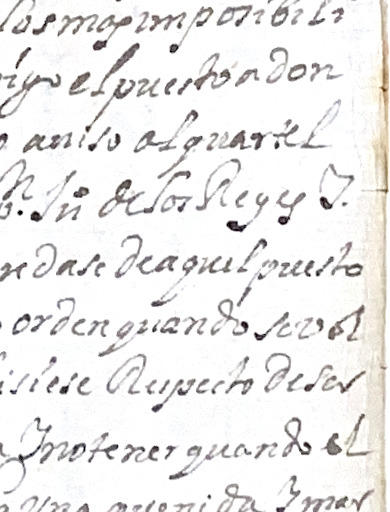 los mas imposibili
el puesto a don
aviso al quartel
Jū de los Reyes J.
redase de aquel puesto
orden quando se vol
isiese Respecto de ser
J no tener quando el
una avenida J mas